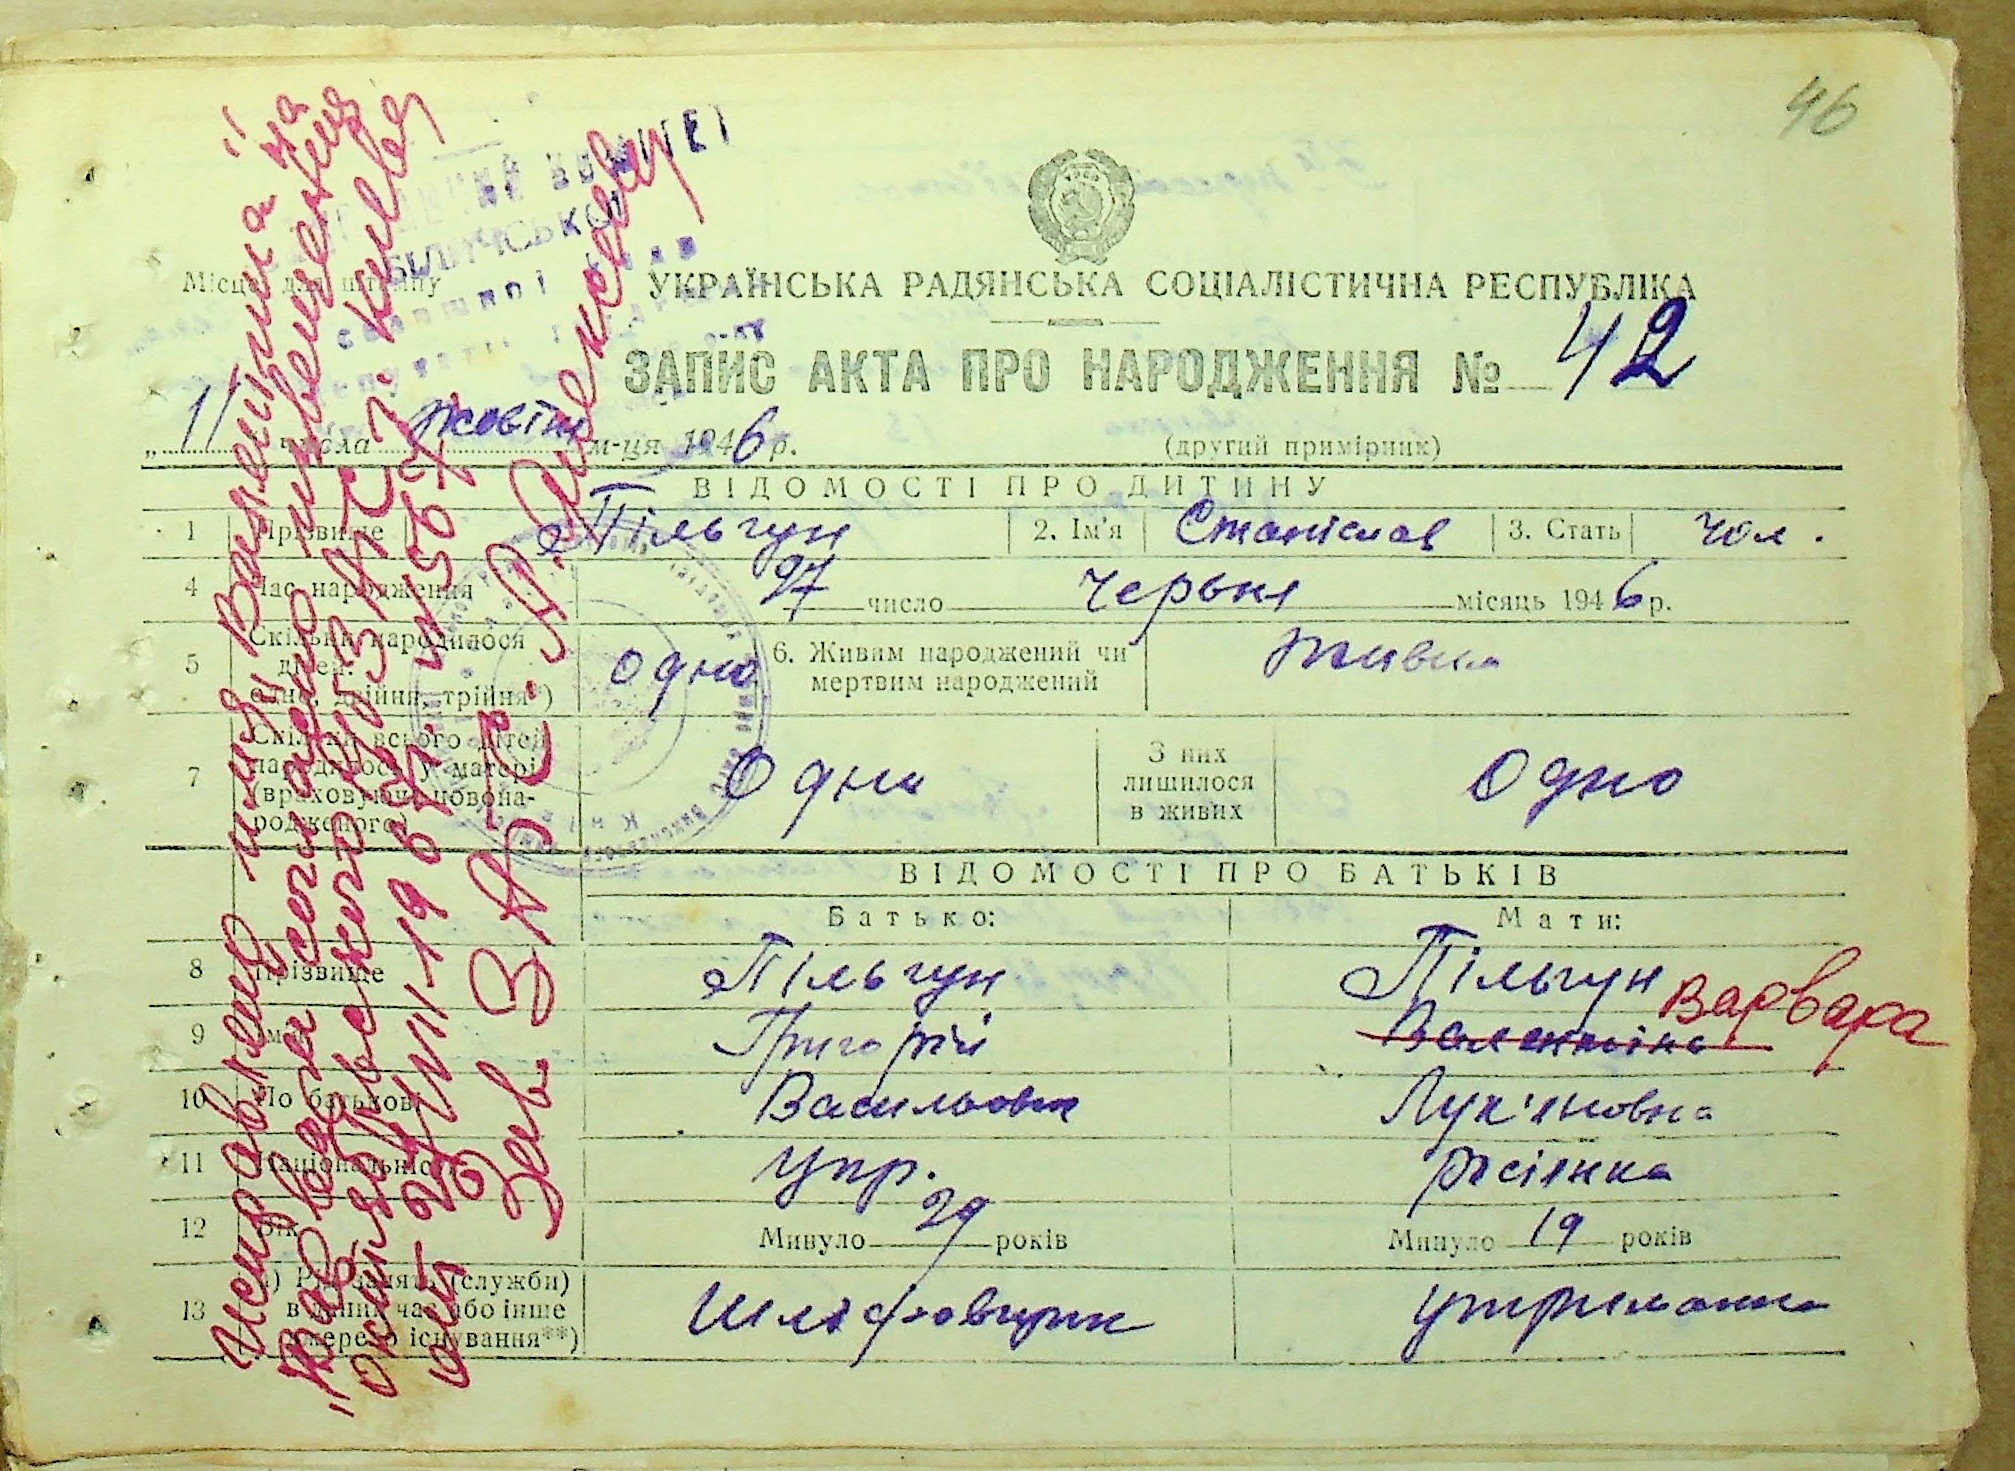 46
КОМІТЕТ
БІЛИЧСЬКОЇ
Місце для штампу
УКРАЇНСЬКА РАДЯНСЬКА СОЦІАЛІСТИЧНА РЕСПУБЛІКА
ЗАПИС АКТА ПРО НАРОДЖЕННЯ № 42
„11 числа жовтн м-ця 1946 р.
(другий примірник)
ВІДОМОСТІ ПРО ДИТИНУ
1 Прізвище Пільгун 2. Ім'я Станіслав 3. Стать чол.
4 Час народження 27 число червня місяць 1946 р.
5 Скільки народилося дітей: одно, двійня, трійня*) одно 6. Живим народжений чи мертвим народжений
7 Скільки всього дітей народилось у матері (враховуючи новонародженого) Одна З них лишилося в живих Одно
ВІДОМОСТІ ПРО БАТЬКІВ
Батько: Мати:
8 Прізвище Пільгун Пільгун
9 Ім'я Григорій Валентина Варвара
10 По батькові Васильович Лук'яновна
11 Національність укр. росіянка
12 Вік Минуло 29 років Минуло 19 років
13 а) Рід занять (служби) в даний час або інше джерело існування**) Шліфовщик утриманка
Исправлено имя „Валентина" на
„Варвара" на основании извещения
Октябрьского ЗАГС г. Киева
Зав ЗАГС